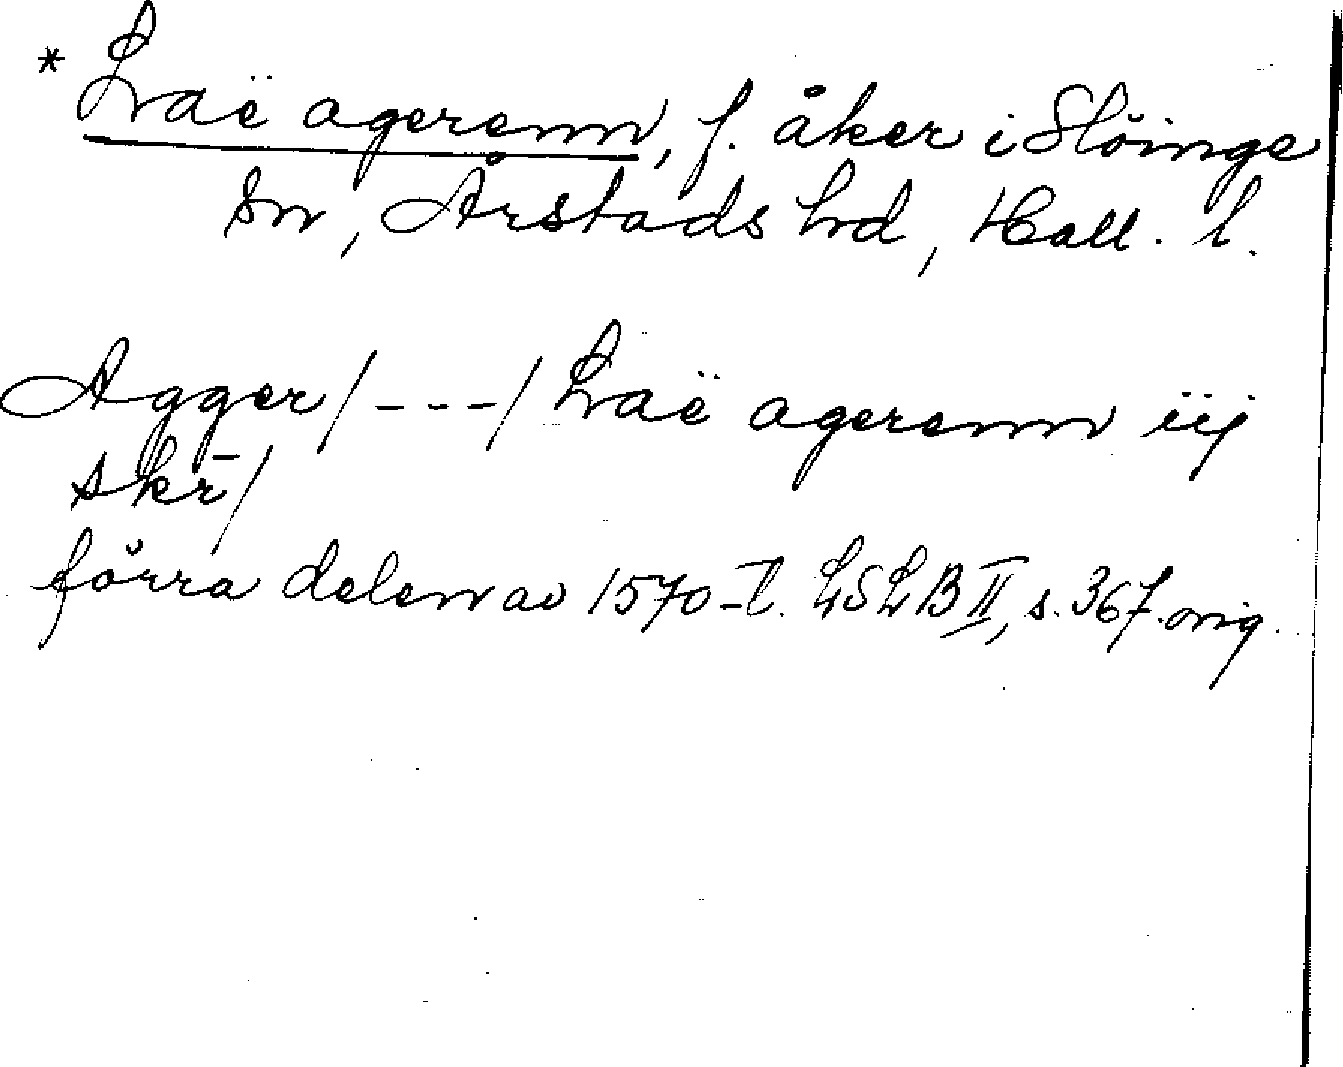 * Lraë agerenn, f. åker i Slöinge
sn, Årstads hrd, Hall. l.
Agger/---/ Lraë agerenn iij
skr̄/
förra delen av 1570-t. LSLB II, s. 367. orig.